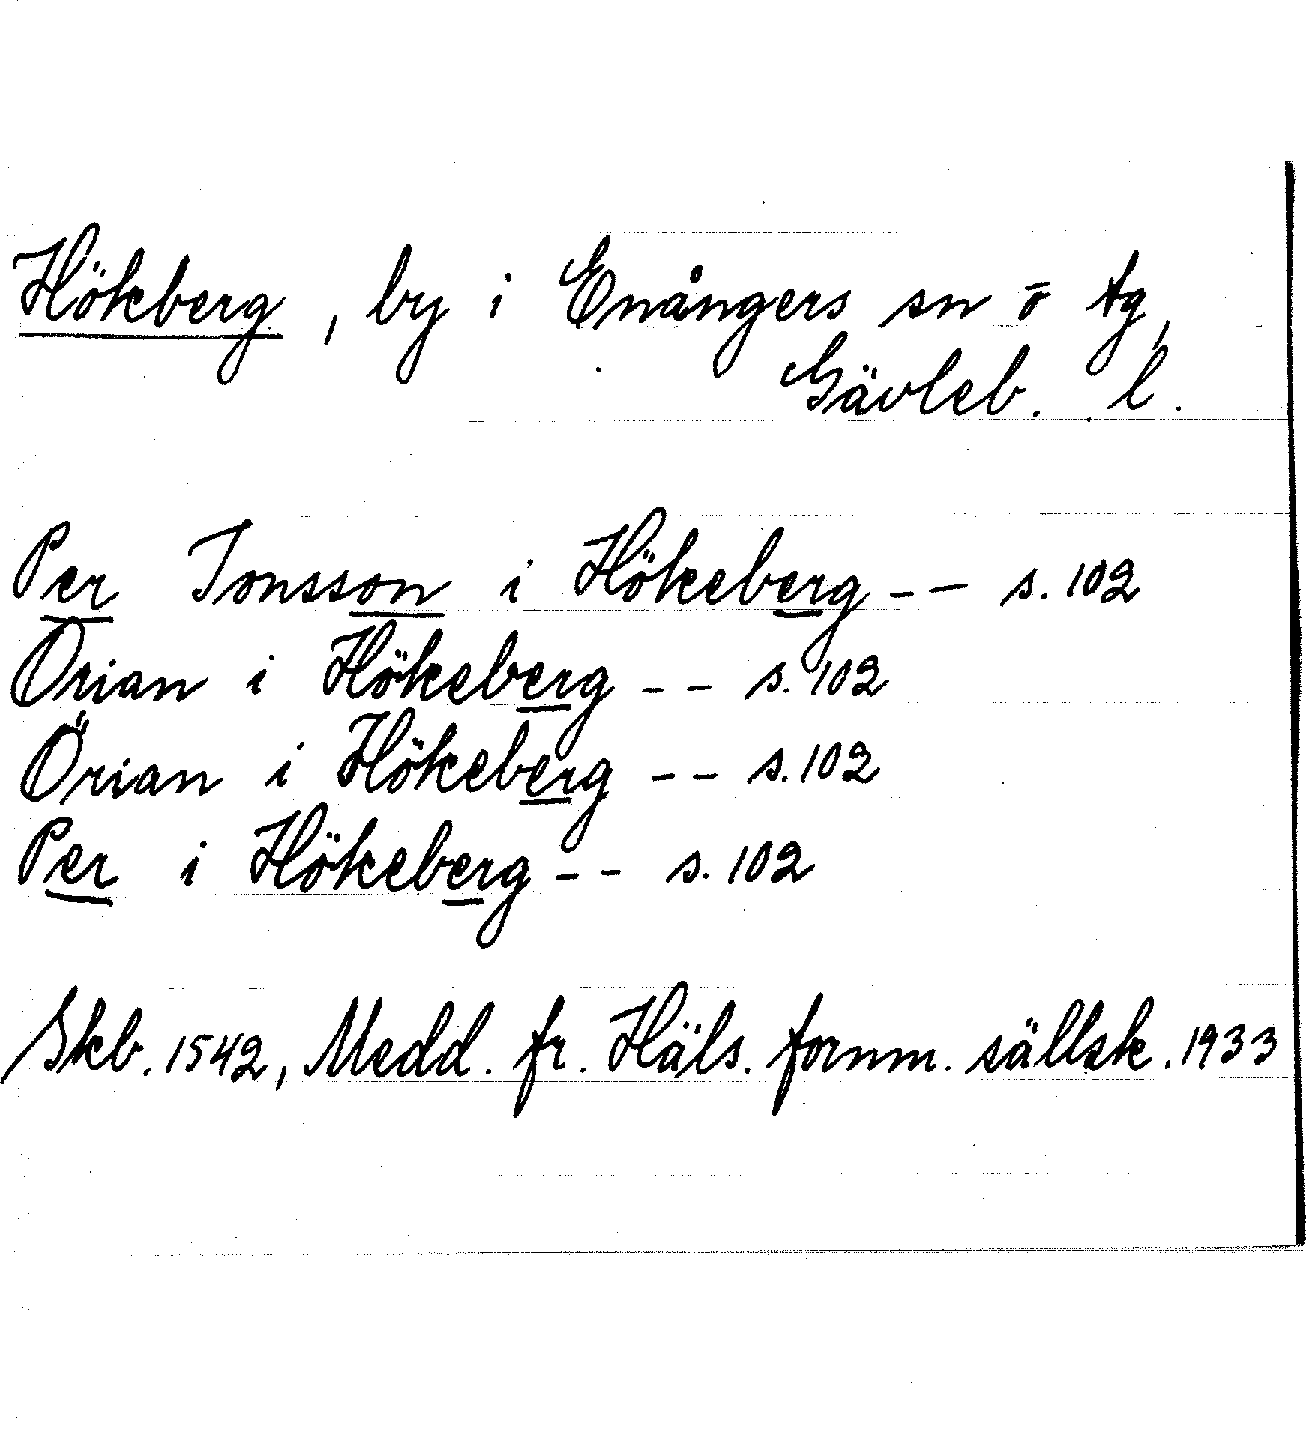 Hökberg, by i Enångers sn o tg,
Gävleb. l.
Per Jonsson i Hökeberg -- s. 102
Orian i Hökeberg -- s. 102
Örian i Hökeberg -- s. 102
Per i Hökeberg -- s. 102
Skb. 1542, Medd. fr. Häls. fornm. sällsk. 1933